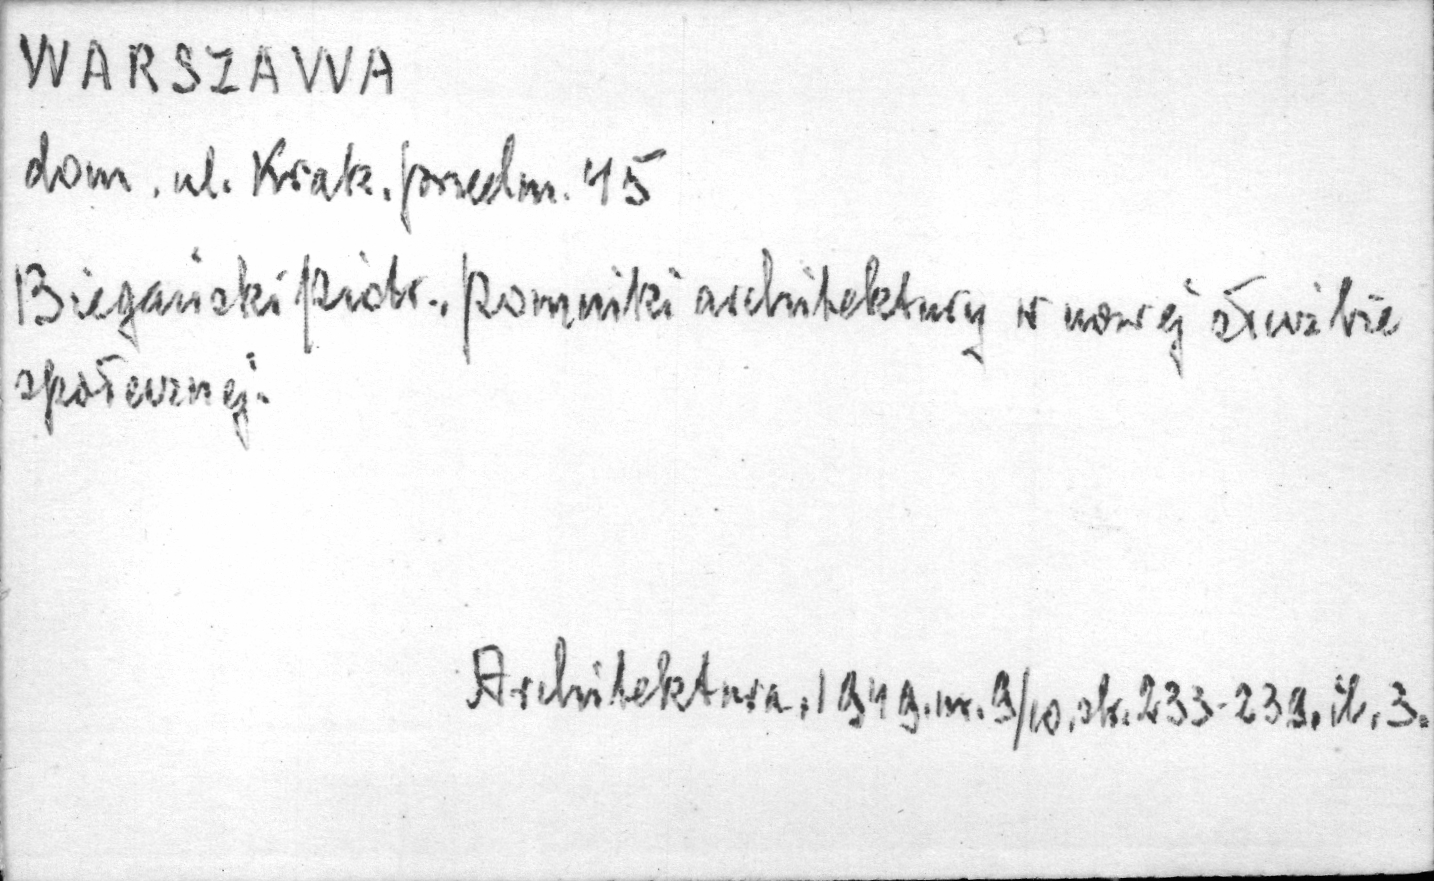 WARSZAWA
dom, ul. Krak. przedm. 45
Biegański Piotr., Pomniki architektury w nowej służbie
społecznej.
Architektura, 1949. nr. 9/10, str. 233-239, il, 3.